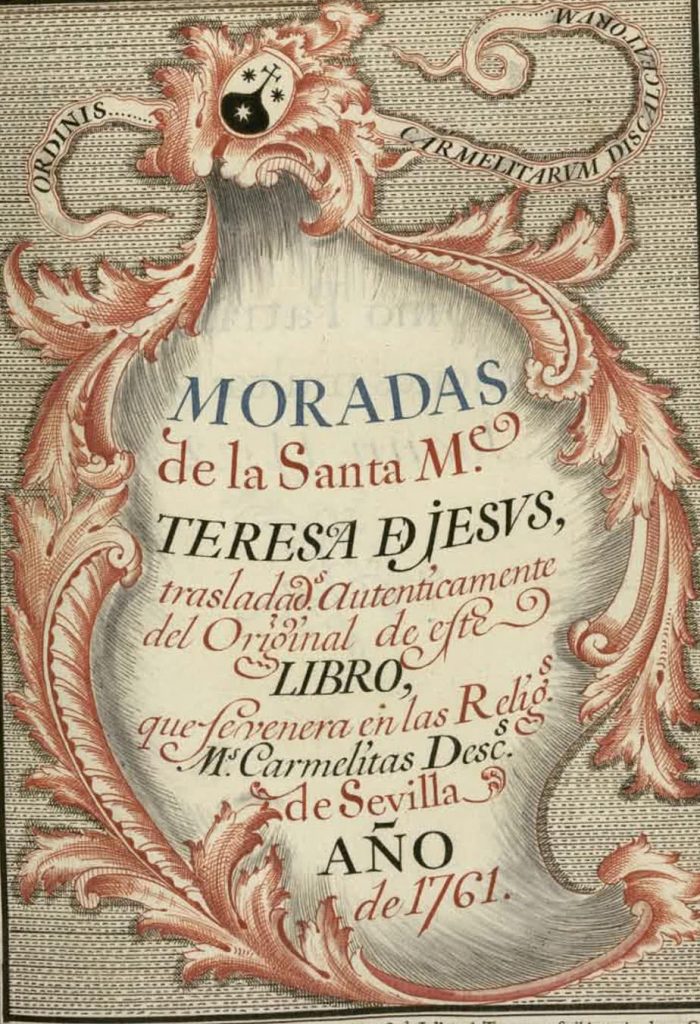 ORDINIS........
CARMELITARVM DISCALCEATORVM........
MORADAS
de la Santa M.ᵉ
TERESA DE JESVS,
trasladad.ˢ Autenticamente
del Original de este
LIBRO,
que se venera en las Relig.ˢ
M.ˢ Carmelitas Desc.ˢ
de Sevilla
AÑO
de 1761.